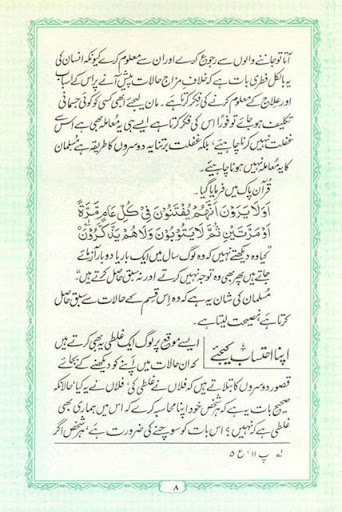 آتا تو جاننے والوں سے رجوع کرے اور ان سے معلوم کرے کیونکہ انسان کی
یہ بالکل فطری بات ہے کہ خلاف مزاج حالات پیش آنے پر اس کے اسباب
اور علاج کے معلوم کرنے کی فکر کرتا ہے۔ مان لیجئے ابھی کسی کو کوئی جسمانی
تکلیف ہو جائے تو فورًا اس کی فکر کرتا ہے ایسے ہی یہ معاملہ بھی ہے اس سے
غفلت نہیں کرنا چاہیئے، بلکہ غفلت برتنا یہ دوسروں کا طریقہ ہے مسلمان
کا یہ معاملہ نہیں ہونا چاہیئے۔
قرآن پاک میں فرمایا گیا۔
اَوَلَا يَرَوْنَ اَنَّهُمْ يُفْتَنُوْنَ فِيْ كُلِّ عَامٍ مَّرَّةً
اَوْ مَرَّتَيْنِ ثُمَّ لَا يَتُوْبُوْنَ وَلَا هُمْ يَذَّكَّرُوْنَ لہ
کیا وہ دیکھتے نہیں کہ وہ لوگ سال میں ایک بار یا دو بار آزمائے
جاتے ہیں پھر بھی وہ توجہ نہیں کرتے اور نہ سبق حاصل کرتے ہیں"
مسلمان کی شان یہ ہے کہ وہ اس قسم کے حالات سے سبق حاصل
کرتا ہے نصیحت لیتا ہے۔
اپنا احتساب کیجئے
ایسے موقع پر لوگ ایک غلطی یہ بھی کرتے ہیں
کہ ان حالات میں اپنے کو دیکھنے کے بجائے
قصور دوسروں کا بتلاتے ہیں کہ فلاں نے غلطی کی، فلاں نے یہ کیا، حالانکہ
صحیح بات یہ ہے کہ ہر شخص خود اپنا محاسبہ کرے کہ اس میں ہماری بھی
غلطی ہے کہ نہیں؟ اس بات کو سوچنے کی ضرورت ہے، ہر شخص اگر
لہ پ ۱۱، ع ۵
۸